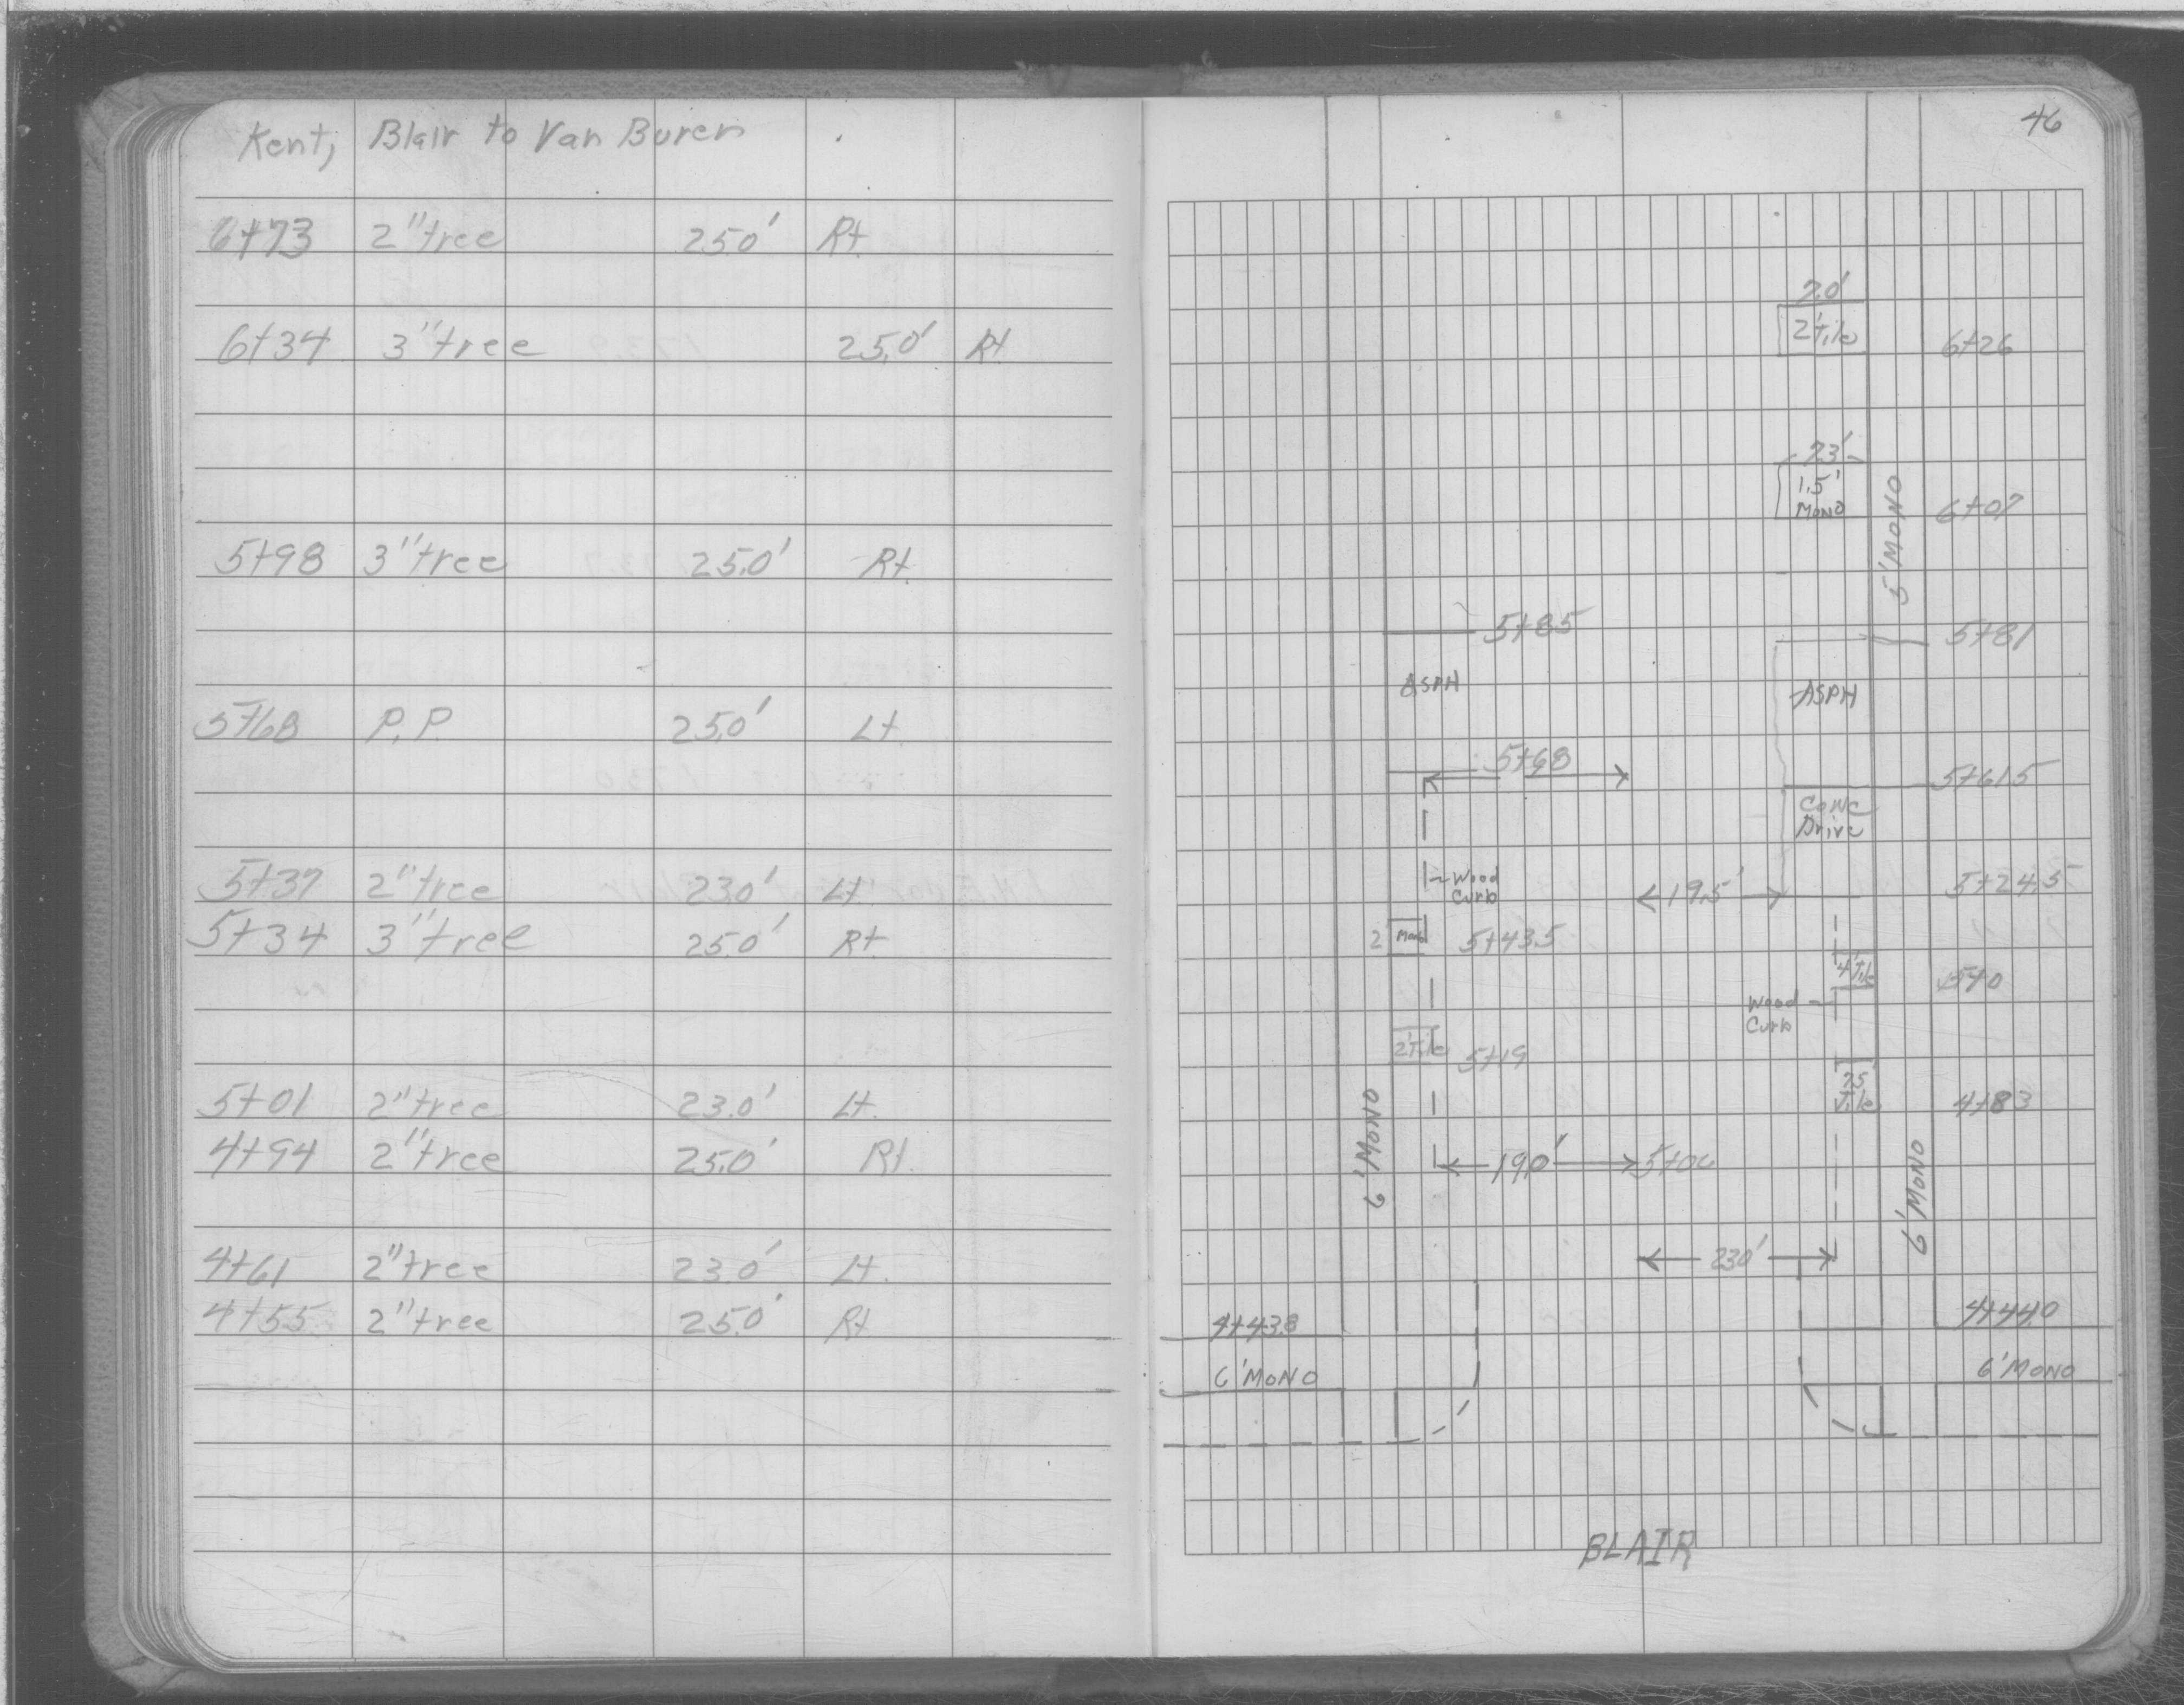 Kent, Blair to Van Buren
6+73 2" tree 25.0' Rt.
6+34 3" tree 25.0' Rt
5+98 3" tree 25.0' Rt.
5+68 P.P. 25.0' Lt.
5+37 2" tree 23.0' Lt.
5+34 3" tree 25.0' Rt.
5+01 2" tree 23.0' Lt.
4+94 2" tree 25.0' Rt.
4+61 2" tree 23.0' Lt.
4+55 2" tree 25.0' Rt
46
7.0'
2' Tile 6+26
7.3'
1.5'
MONO 6+07
5' MONO
5+85 5+81
ASPH ASPH
5+68 5+61.5
CONC
Drive
Wood
Curb 19.5' 5+24.5
2' Mono 5+43.5
4' Tile 5+0
Wood
Curb
2' Tile 5+19
Tile 4+83
6' MONO 19.0'
6' MONO
23.0'
4+43.8 4+44.0
6' MONO 6' MONO
BLAIR